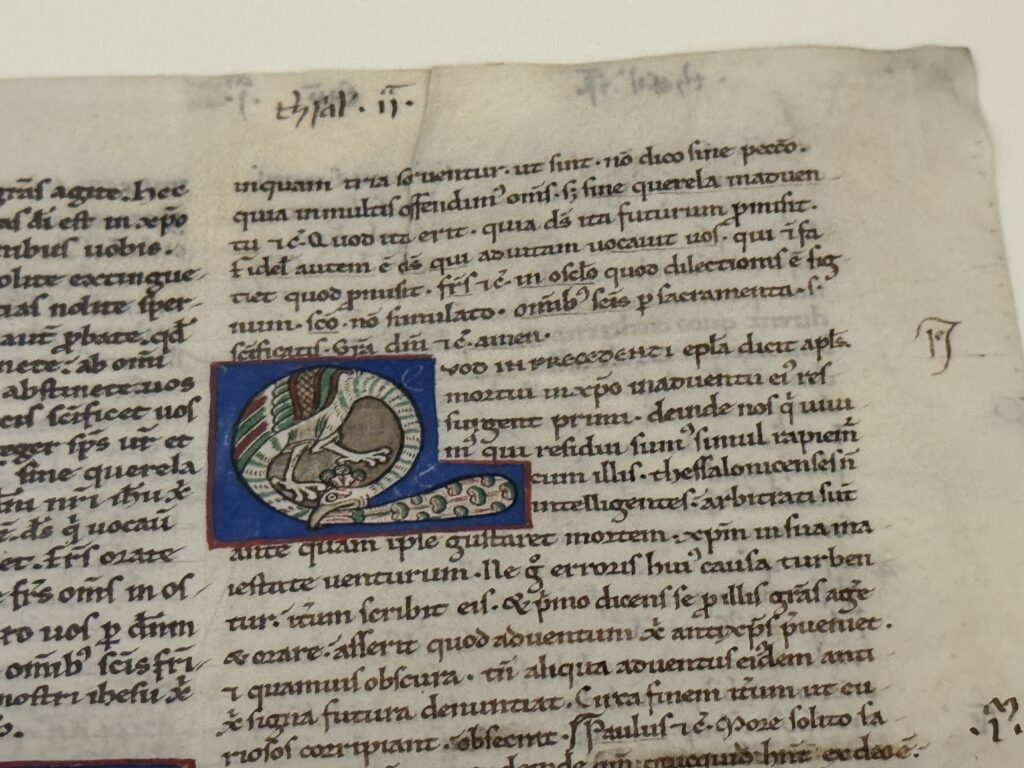 thſal · ıı ·
grãs agite. hec
as dı̃ eſt in xp̃o
nibus uobis.
olite extingue
cias nolite ſper
aut̃ ꝓbate. qd̃
nete; ab om̃i
abſtinete uos
ſcĩficet uos
eger ſp̃s ur̃ et
ſine querela
nr̃i ihũ xp̃
ds̃ q̃ uocaũ
et. Fr̃s orate
fr̃s om̃s in oſ
ro uos ꝑ dñm
om̃ib; ſcĩs fr̃i
noſtri iheſu xp̃
inquam tria ſeruentur · ut ſint · nõ dico ſine pecc̃o.
quia in multis offendimꝰ om̃s · ſꝫ ſine querela in aduen
tu ⁊ c̃. Quod ita erit · quia ds̃ ita futurum ꝓmiſit.
Fidel̃ autem ẽ ds̃ qui ad uitam uocauit uos · qui ⁊ fa
ciet quod ꝓmiſit · fr̃s ⁊ c̃ · in oſclo quod dilectionis ẽ ſig
num · ſcõ · nõ ſimulato · om̃ib; ſcĩs ꝑ ſacramenta · ſ·
ſcĩficatis. Gr̃a dñi ⁊ c̃. amen.
Vod in precedenti epl̃a dicit apl̃s.
mortui in xp̃o in aduentu eiꝰ reſ
ſurgent primi · deinde nos q̃ uiui
mꝰ qui reſidui ſumꝰ ſimul rapiem̃
cum illis · theſſalonicenſes ñ
intelligentes · arbitrati ſũt
ante quam ipſe guſtaret mortem · xp̃m in ſua ma
ieſtate uenturum · Ne g̊ erroris huiꝰ cauſa turben
tur · itr̃um ſcribit eis · & p̃mo dicens ſe ꝓ illis grãs agẽ
& orare · aſſerit quod aduentum xp̃ antixp̃s p̃ueniet ·
⁊ quamuis obſcura · tñ aliqua aduentus eiꝰdem anti
xp̃ ſigna futura denuntiat. Circa finem itr̃um ut cu
rioſos corripiant · obſecrat. Paulus ⁊ c̃. More ſolito ſa
quicquid hñt ex deo ẽ ·